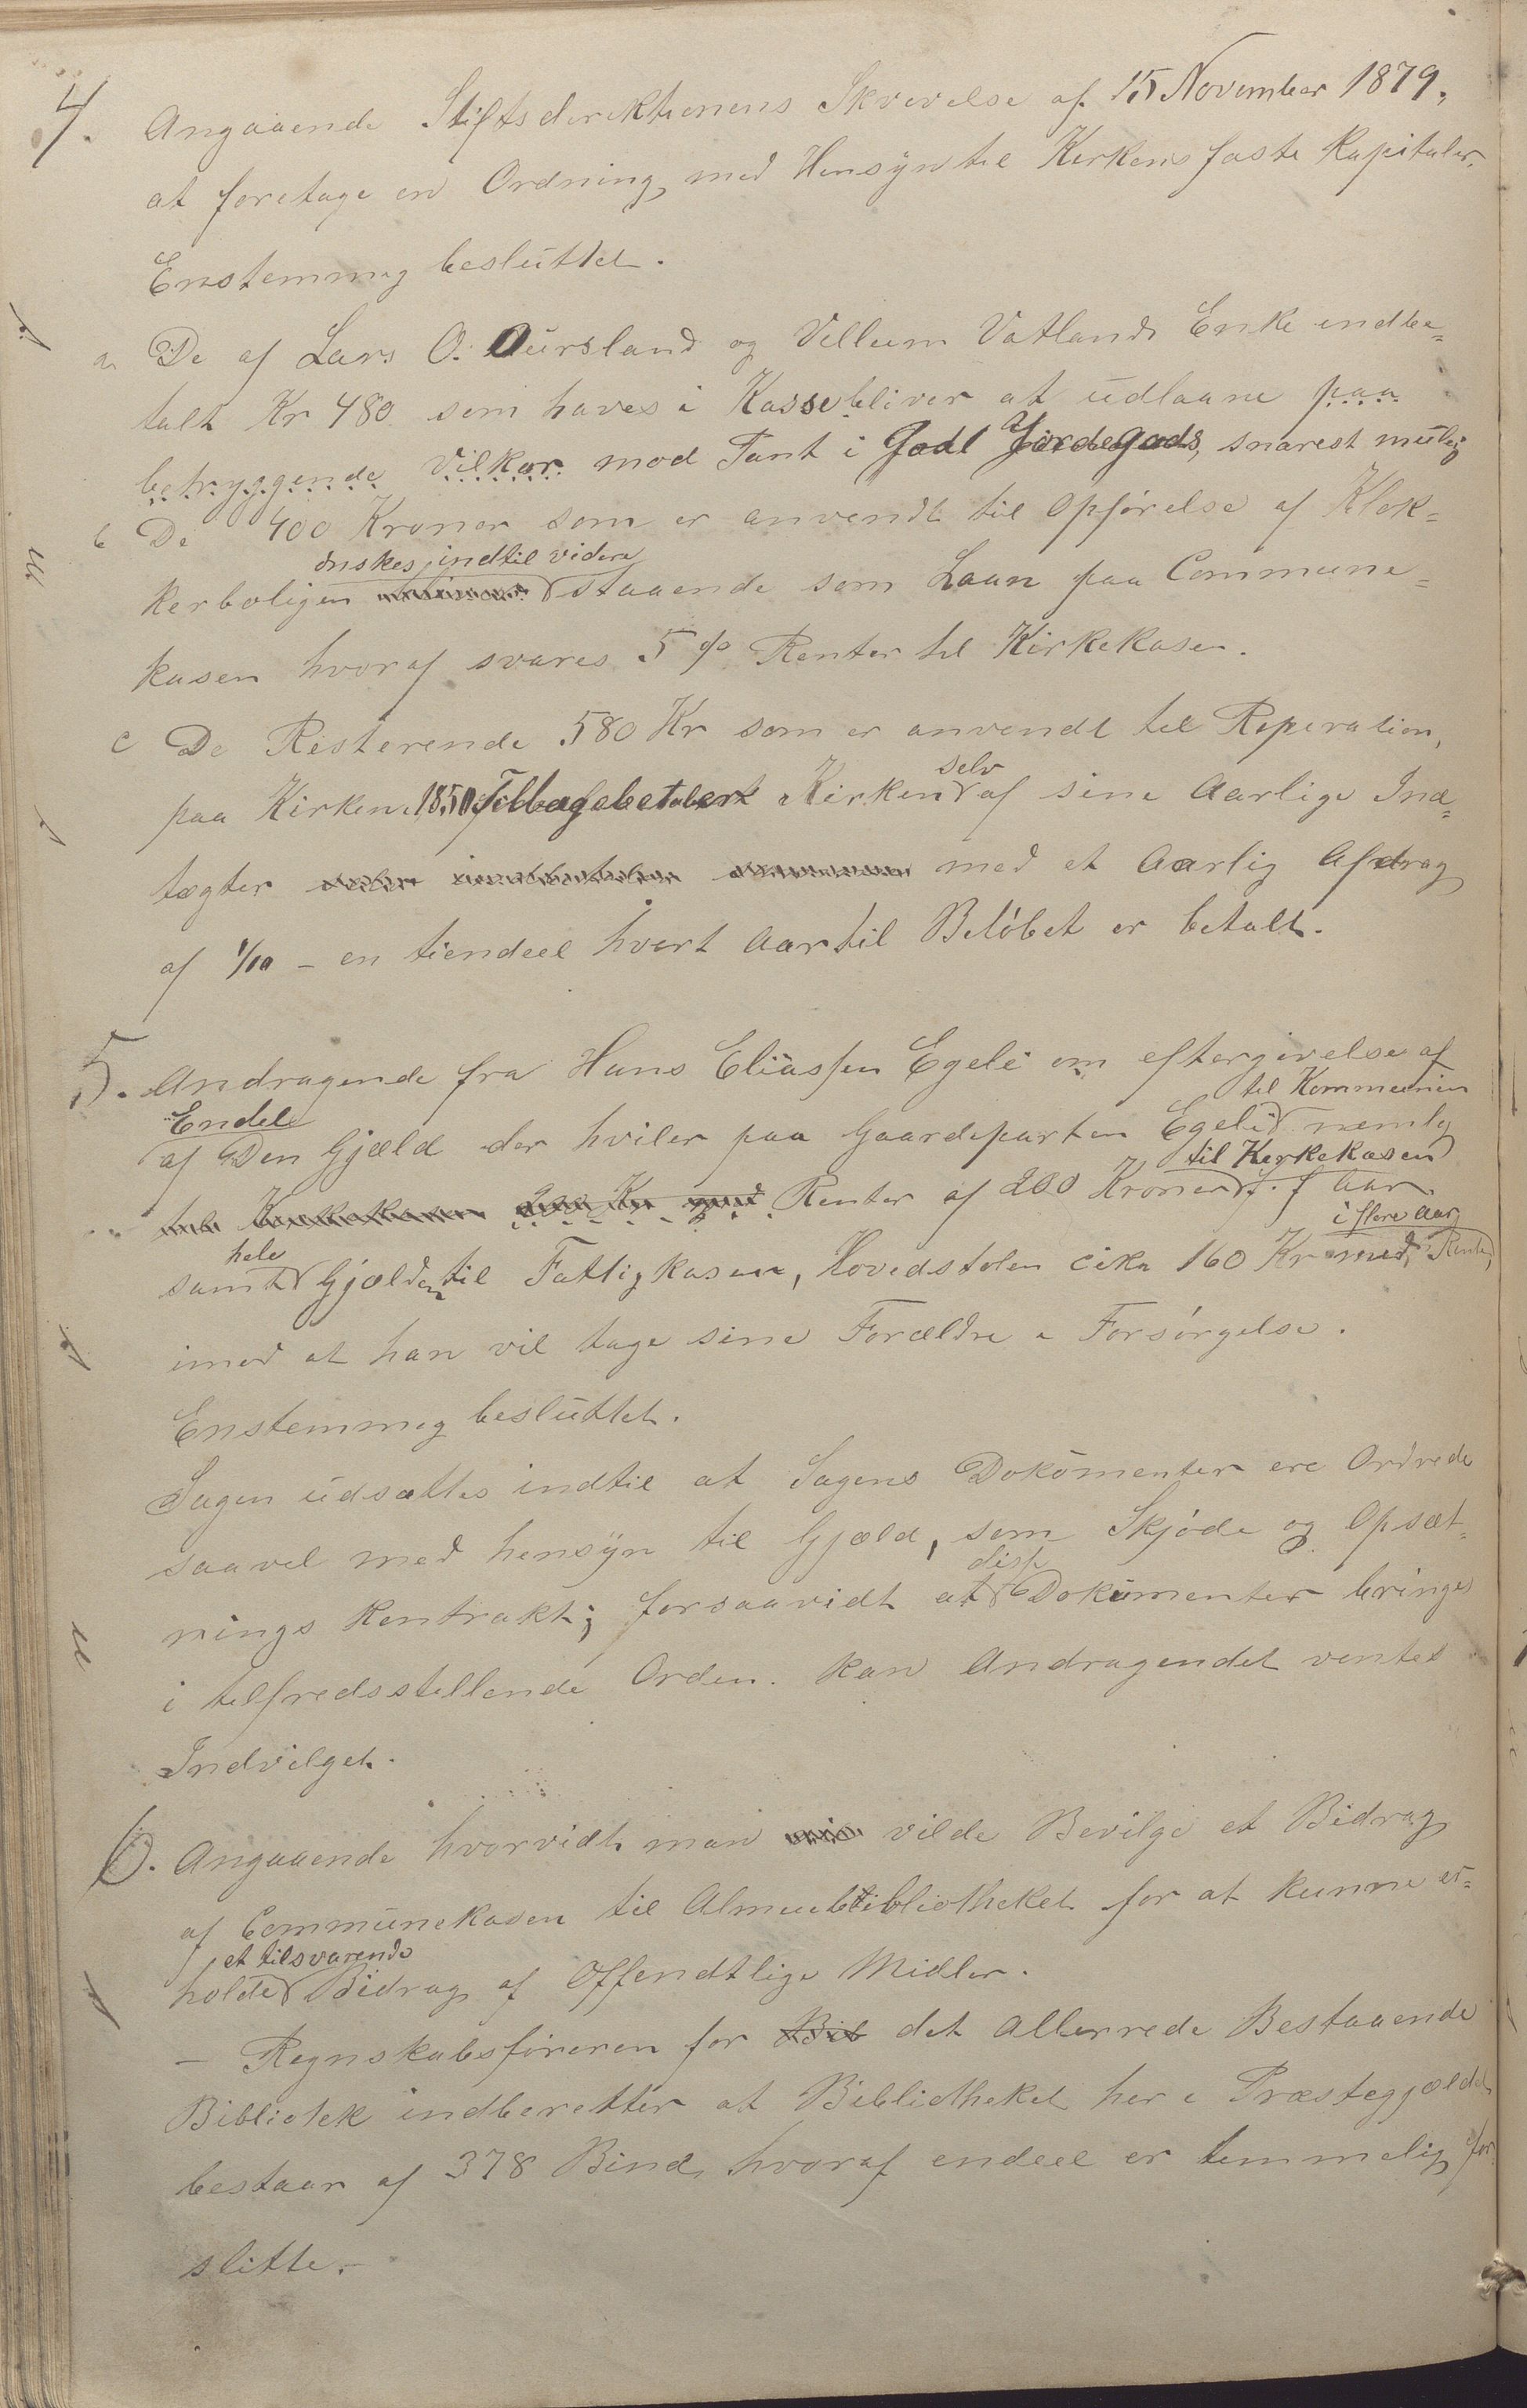 4. Angaaende Stiftsdirektionens Skrivelse af 15 November 1879,
at foretage en Ordning med Hensyn til Kirkens faste Kapitaler.
Enstemmig besluttet.
a De af Lars O. Aursland og Villum Vatlands Enke indbe=
talt Kr 480 som haves i Kasse bliver at udlaane paa
betryggende Vilkor mod Pant i Godt Jordegods, snarest mulig
b De 400 Kroner som er anvendt til Opførelse af Klok=
ønskes indtil videre
kerboligen staaende som Laan paa Commune=
kasen hvoraf svares 5 % Renter til Kirkekasen.
c De Resterende 580 Kr som er anvendt til Reperation,
selv
paa Kirken 1850 Tilbagebetaler Kirken af sine Aarlige Ind=
tægter med et Aarlig Afdrag
af 1/10 - en tiendeel hvert Aar til Beløbet er betalt.
5. Andragende fra Hans Eliassen Egeli om eftergivelse af
Endel til Kommunen
af Den Gjæld der hviler paa Gaardeparten Egelid nemlig
til Kirkekasen
Renter af 200 Kroner f. f Aar
hele i flere Aar
samt Gjælden til Fattigkasen, Hovedstolen cika 160 Kr med Renter,
imod at han vil tage sine Forældre i Forsørgelse.
Enstemmig besluttet.
Sagen udsættes indtil at Sagens Dokumenter ere Ordrede
saavel med hensyn til Gjæld, som Skjøde og Opsæt=
disse
nings Kontrakt; forsaavidt at Dokumenter bringes
i tilfredsstillende Orden. kan Andragendet ventes
Indvilget.
6. Angaaende hvorvidt man vilde Bevilge et Bidrag
af Communekasen til Almuebibliotheket for at kunne er=
et tilsvarende
holde Bidrag af Offendtlige Midler.
- Regnskabsføreren for Bib det allerrede Bestaaende
Bibliotek indberetter at Bibliotheket her i Præstegjældet
bestaar af 378 Bind, hvoraf endeel er temmelig for
slitte.-